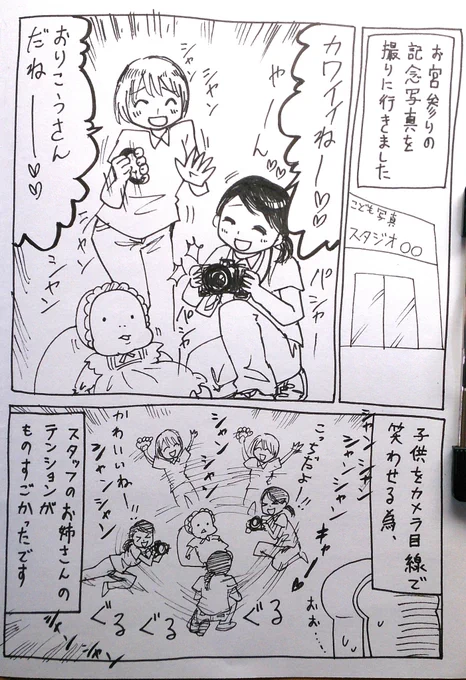 お宮参りの
記念写真を
撮りに行きました
こども写真
スタジオ〇〇
カワイイねー♡♡
やーん♡♡
シャン
シャン
おりこうさん
だねー♡♡
シャン
シャン
パシャ
パシャー
子供をカメラ目線で
笑わせる為、
シャン
シャン
シャン
シャン
こっちだよー!!
キャー♡
シャン
シャン
シャン
かわいいねー!!
ぐる
ぐる
ぐる
おぉ…
スタッフのお姉さんの
テンションが
ものすごかったです
シャン
シャン
シャン